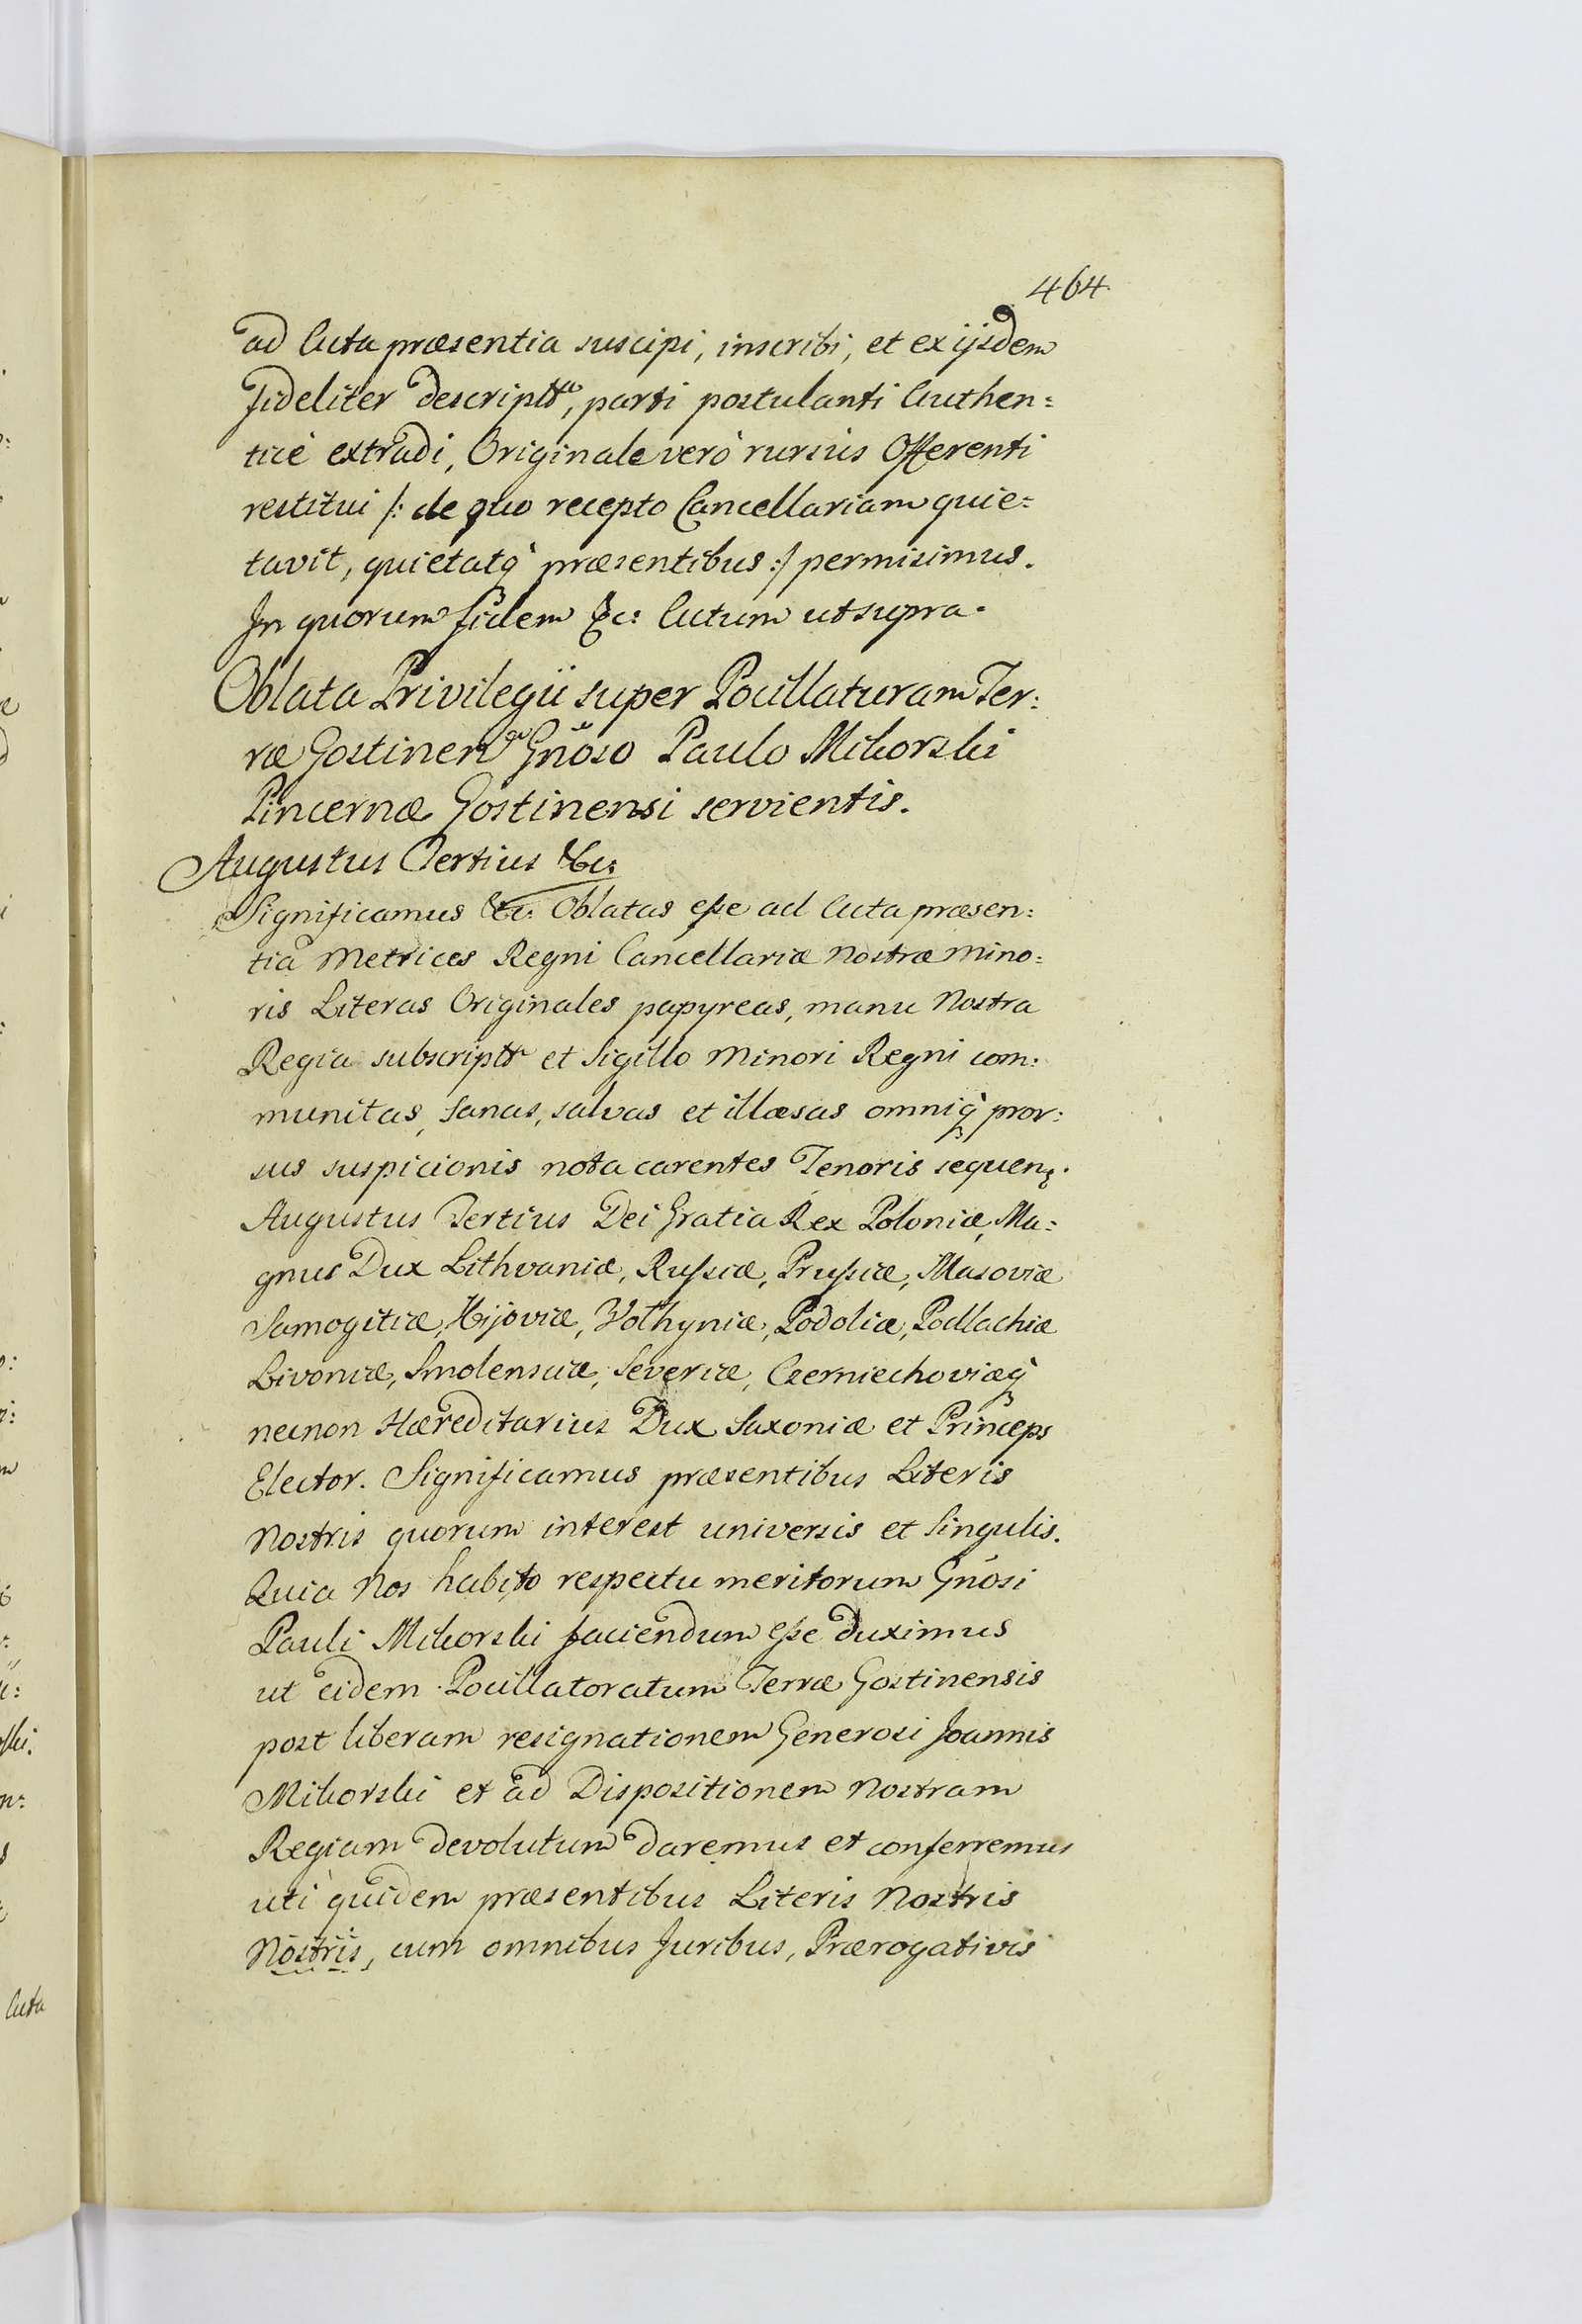 464.
ad Acta præsentia suscipi, inscribi, et ex ijsdem
Fideliter descriptt, parti postulanti Authen=
ticè extradi, Originale verò rursùs Offerenti
restitui /: de quo recepto Cancellariam quie=
tavit, quietatq̀ præsentibus :/ permisimus.
In quorum fidem &c: Actum ut supra.
Oblata Privilegii super Pocillaturam Ter:
ræ Gostinen Gñoso Paulo Mikorski
Pincernæ Gostinensi servientis.
Augustus Tertius &c:
Significamus &c: Oblatas eſse ad Acta præsen:
tia Metrices Regni Cancellariæ Nostræ Mino:
ris Literas Originales papyreas, manu Nostra
Regia subscriptt et Sigillo Minori Regni com:
munitas, sanas, salvas et illæsas omniq̀ pror:
sus suspicionis nota carentes Tenoris sequen.
Augustus Tertius Dei Gratia Rex Poloniæ, Ma:
gnus Dux Lithvaniæ, Ruſsiæ, Pruſsiæ, Masoviæ
Samogitiæ, Kijoviæ, Volhyniæ, Podoliæ, Podlachiæ
Livoniæ, Smolensciæ, Severiæ, Czerniechoviæq̀
necnon Hæreditarius Dux Saxoniæ et Princeps
Elector. Significamus præsentibus Literis
Nostris quorum interest universis et Singulis.
Quia Nos habito respectu meritorum Gñosi
Pauli Mikorski faciendum eſse duximus
ut eidem Pocillatoratum Terræ Gostinensis
post liberam resignationem Generosi Joannis
Mikorski et ad Dispositionem Nostram
Regiam devolutum daremus et conferremus
uti quidem præsentibus Literis Nostris
Nostris, cum omnibus Juribus, Prærogativis
Acta